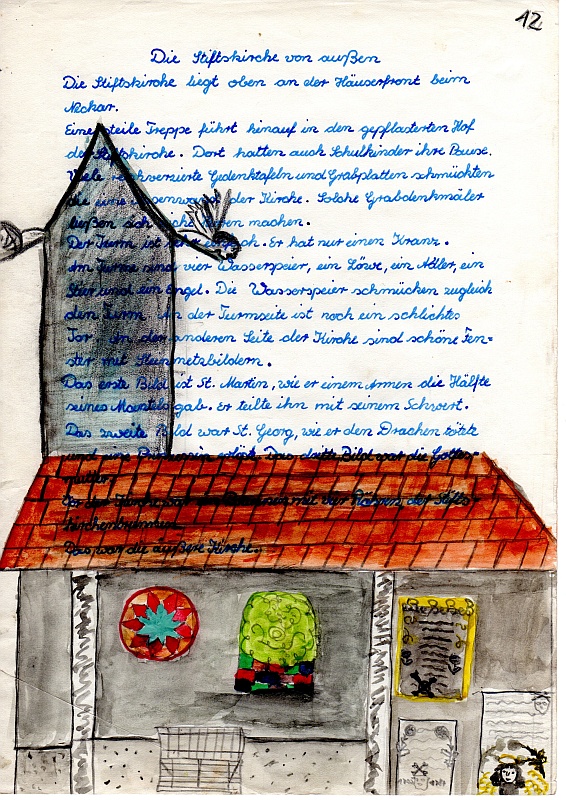 12
Die Stiftskirche von außen
Die Stiftskirche liegt oben an der Häuserfront beim
Neckar.
Eine steile Treppe führt hinauf in den gepflasterten Hof
der Stiftskirche. Dort hatten auch Schulkinder ihre Pause.
Viele reichverzierte Gedenktafeln und Grabplatten schmückten
die eine Aussenwand der Kirche. Solche Grabdenkmäler
ließen sich machen.
Der Turm ist sehr einfach. Er hat nur einen Kranz.
Am Turme sind vier Wasserspeier, ein Löwe, ein Adler, ein
Stier und ein Engel. Die Wasserspeier schmücken zugleich
den Turm. An der Turmseite ist noch ein schlichtes
Tor. An der anderen Seite der Kirche sind schöne Fen=
ster mit Steinmetzbildern.
Das erste Bild ist St. Martin, wie er einem Armen die Hälfte
seines Mantels gab. Er teilte ihn mit seinem Schwert.
Das zweite Bild war St. Georg, wie er den Drachen tötete
und eine Prinzessin erlöste. Das dritte Bild war die Gottes=
mutter.
Vor der Kirche war mit der Stifts=
kirchenbrunnen.
Das war die äußere Kirche.